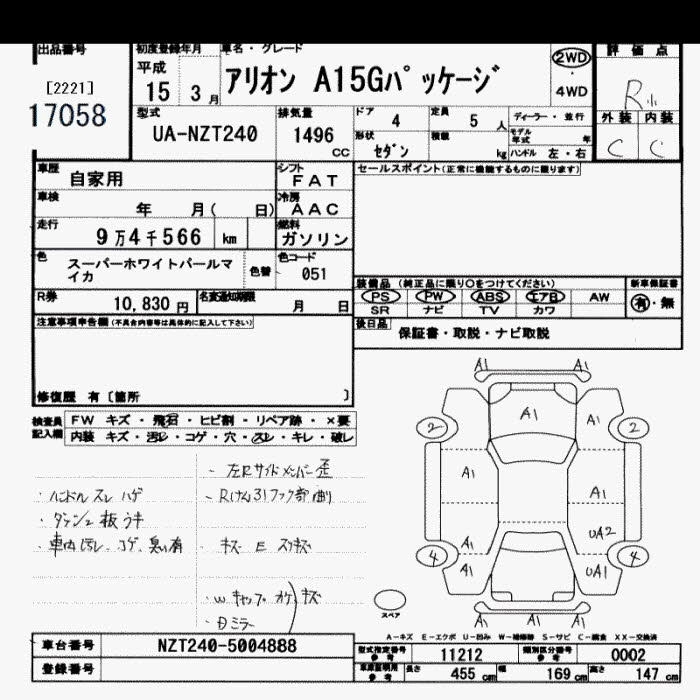 出品番号
[2221]
17058
初度登録年月
平成
15 3月
車名・グレード
アリオン A15Gパッケージ
2WD
・
4WD
評価点
R
外装 内装
C C
型式
UA-NZT240
排気量
1496
CC
ドア 4
定員 5 人
ディーラー・並行
形状 セダン
積載 kg
モデル年式 年
ハンドル 左・右
車歴
自家用
シフト
FAT
セールスポイント(正常に機能するものに限ります)
車検
年 月( 日)
冷房
AAC
走行
9万4千566 km
燃料
ガソリン
色
スーパーホワイトパールマイカ
色替
色コード
051
装備品 (純正品に限り○をつけてください)
新車保証書
PS PW ABS エアB AW
有・無
SR ナビ TV カワ
R券
10,830 円
名変通知期限
月 日
後日品
保証書・取説・ナビ取説
注意事項申告欄(不具合内容等は具体的に記入して下さい)
修復歴 有〔箇所 〕
検査員記入欄
FW キズ・飛石・ヒビ割・リペア跡・×要
内装 キズ・汚レ・コゲ・穴・スレ・キレ・破レ
・左Rサイドメンバー歪
・ハンドルスレ ハゲ
・ダッシュ板ウキ
・車内汚レ、コゲ、臭い有
・キズ E スリキズ
・Wキャップ オケ キズ
・Dミラー
A1 A1
A1
A1
A1
2 2
A1
A1
UA2
4 4
A1
A1
UA1
A1 A1 A1
スペア
A-キズ E-エクボ U-凹み W-補修跡 S-サビ C-腐食 XX-交換済
車台番号
NZT240-5004888
型式指定番号 参考
11212
類別区分番号 参考
0002
登録番号
車庫証明用 参考
長さ 455 cm
幅 169 cm
高さ 147 cm